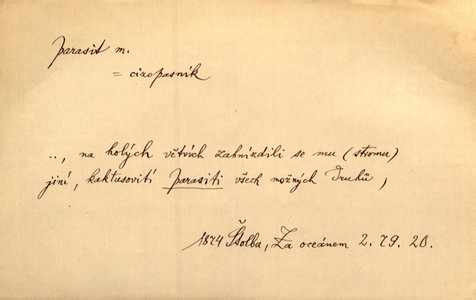 parasit m.
= cizopasník
.., na holých větvích zahnízdili se mu (stromu)
jiní, kaktusovití parasiti všech možných druhů,
1874 Štolba, Za oceánem 2. 79. 20.